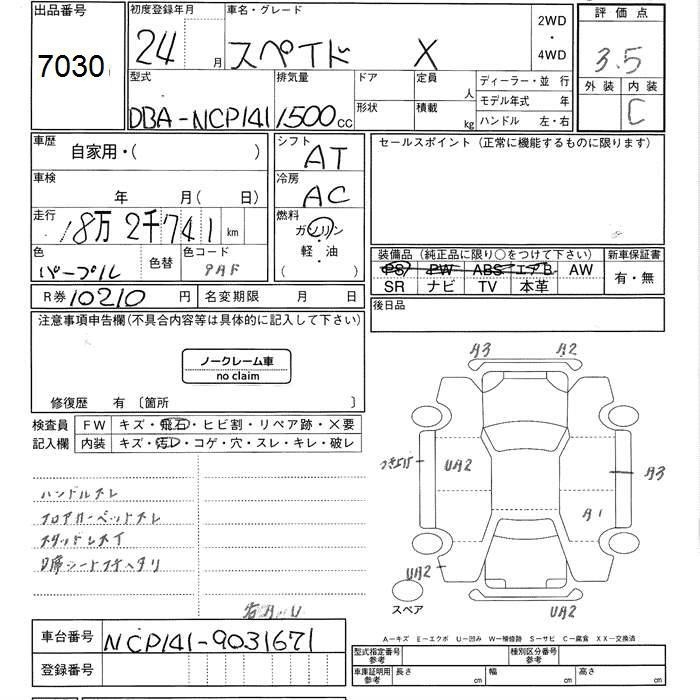 出品番号
7030
初度登録年月
24 月
車名・グレード
スペイド X
2WD
・
4WD
評価点
3.5
外装 内装
C
型式
DBA-NCP141
排気量
1500 cc
ドア
形状
定員 人
積載 kg
ディーラー・並 行
モデル年式 年
ハンドル 左・右
車歴
自家用・( )
車検
年 月( 日)
走行
18万2千741 km
色
パープル
色替
色コード
9AF
シフト
AT
冷房
AC
燃料
ガソリン
・
軽・油
( )
セールスポイント(正常に機能するものに限ります)
装備品(純正品に限り○をつけて下さい)
新車保証書
PS PW ABS エアB AW
SR ナビ TV 本革
有・無
R券 10210 円
名変期限 月 日
後日品
注意事項申告欄(不具合内容等は具体的に記入して下さい)
ノークレーム車
no claim
修復歴 有〔箇所 〕
検査員
記入欄
FW キズ・飛石・ヒビ割・リペア跡・X要
内装 キズ・汚レ・コゲ・穴・スレ・キレ・破レ
ハンドルスレ
フロアカーペットスレ
A3 A2
UA2
A3
A1
UA2
UA2
スペア
車台番号
NCP141-9031671
登録番号
A-キズ E-エクボ U-凹み W-補修跡 S-サビ C-腐食 XX-交換済
型式指定番号
参考
種別区分番号
参考
車庫証明用
参考
長さ cm
幅 cm
高さ cm